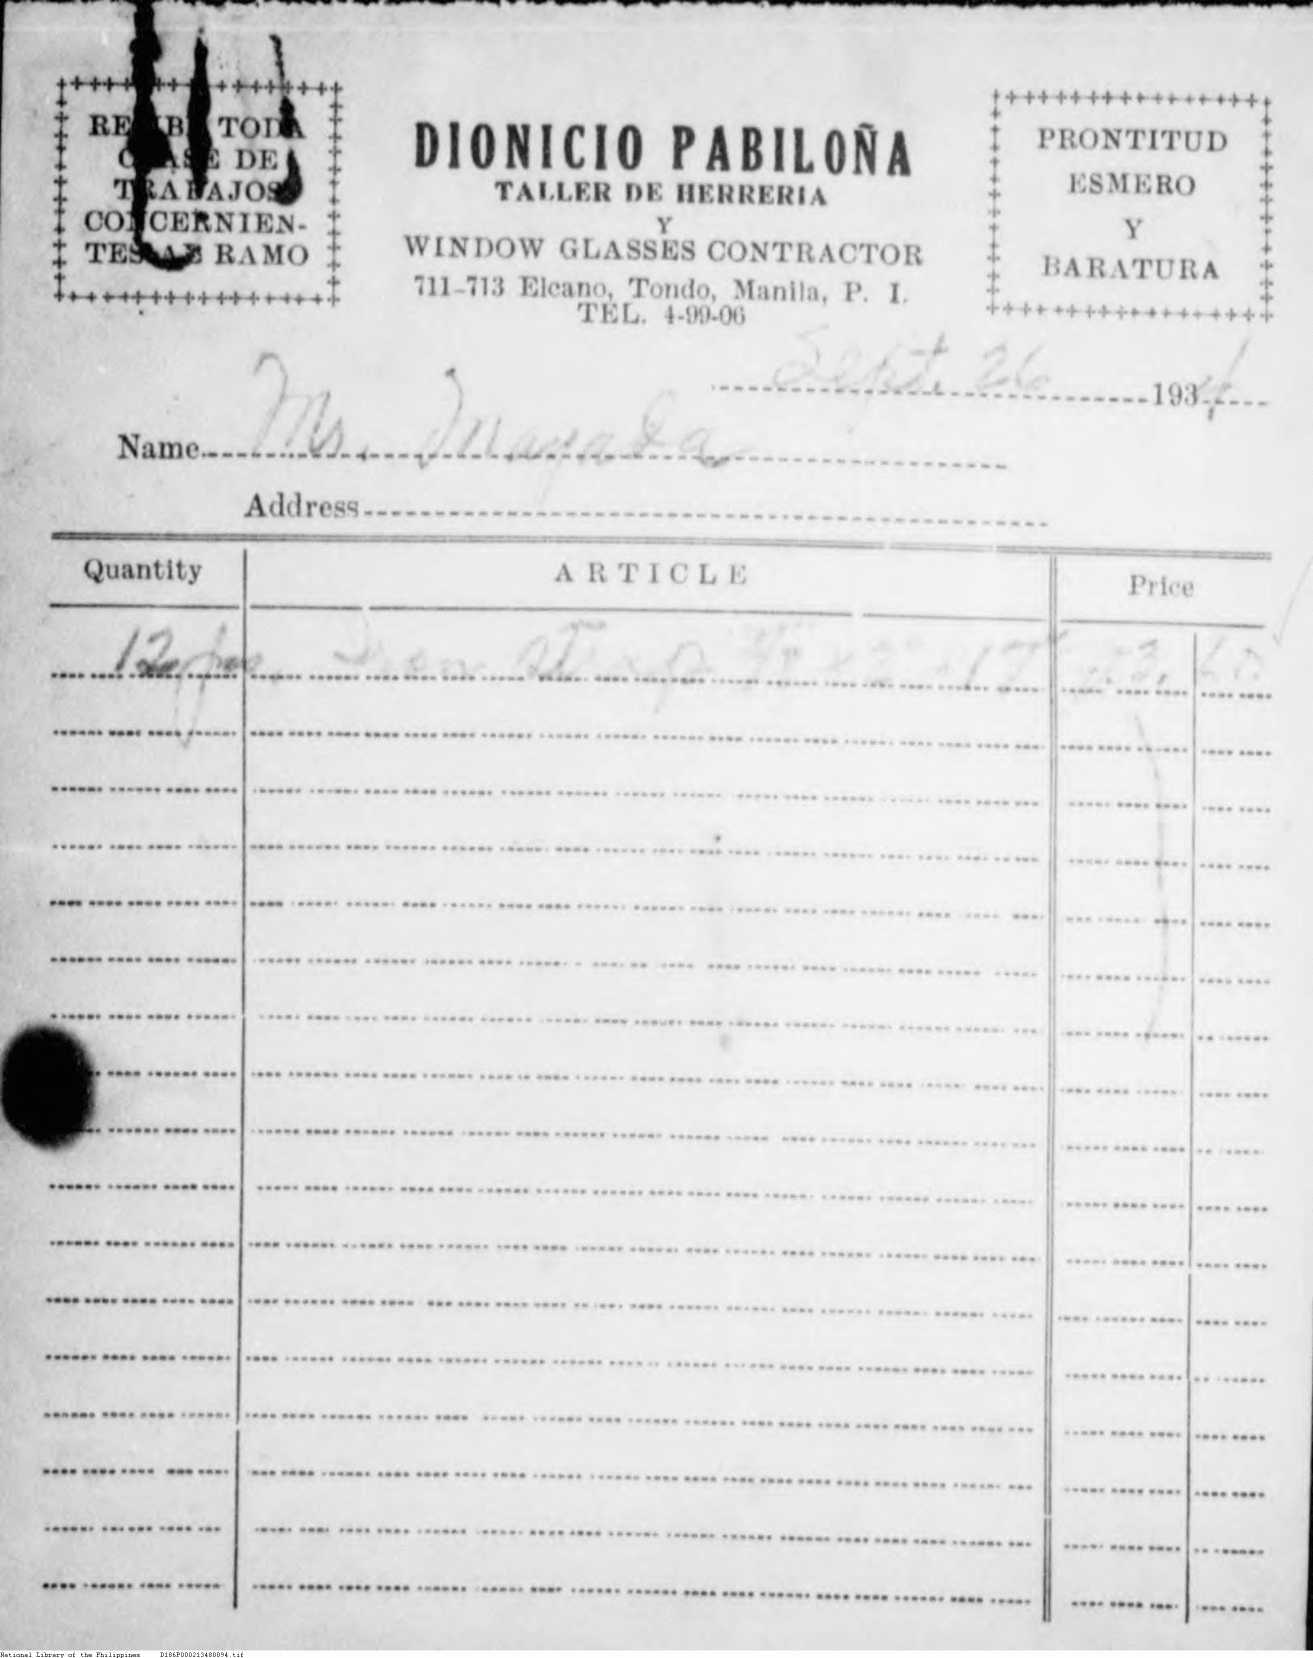 RECIBE TODA
CLASE DE
TRABAJOS
CONCERNIEN-
TES AL RAMO
DIONICIO PABILOÑA
TALLER DE HERRERIA
Y
WINDOW GLASSES CONTRACTOR
711-713 Elcano, Tondo, Manila, P. I.
TEL. 4-99-06
PRONTITUD
ESMERO
Y
BARATURA
Sept. 26 1934
Name Mr.
Address
Quantity ARTICLE Price
12 pcs. Iron Strap
National Library of the Philippines D186P000213480894.tif